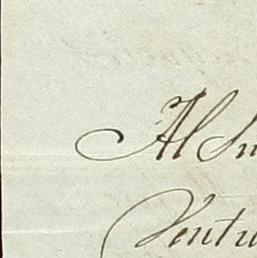 Al Su
Ventu